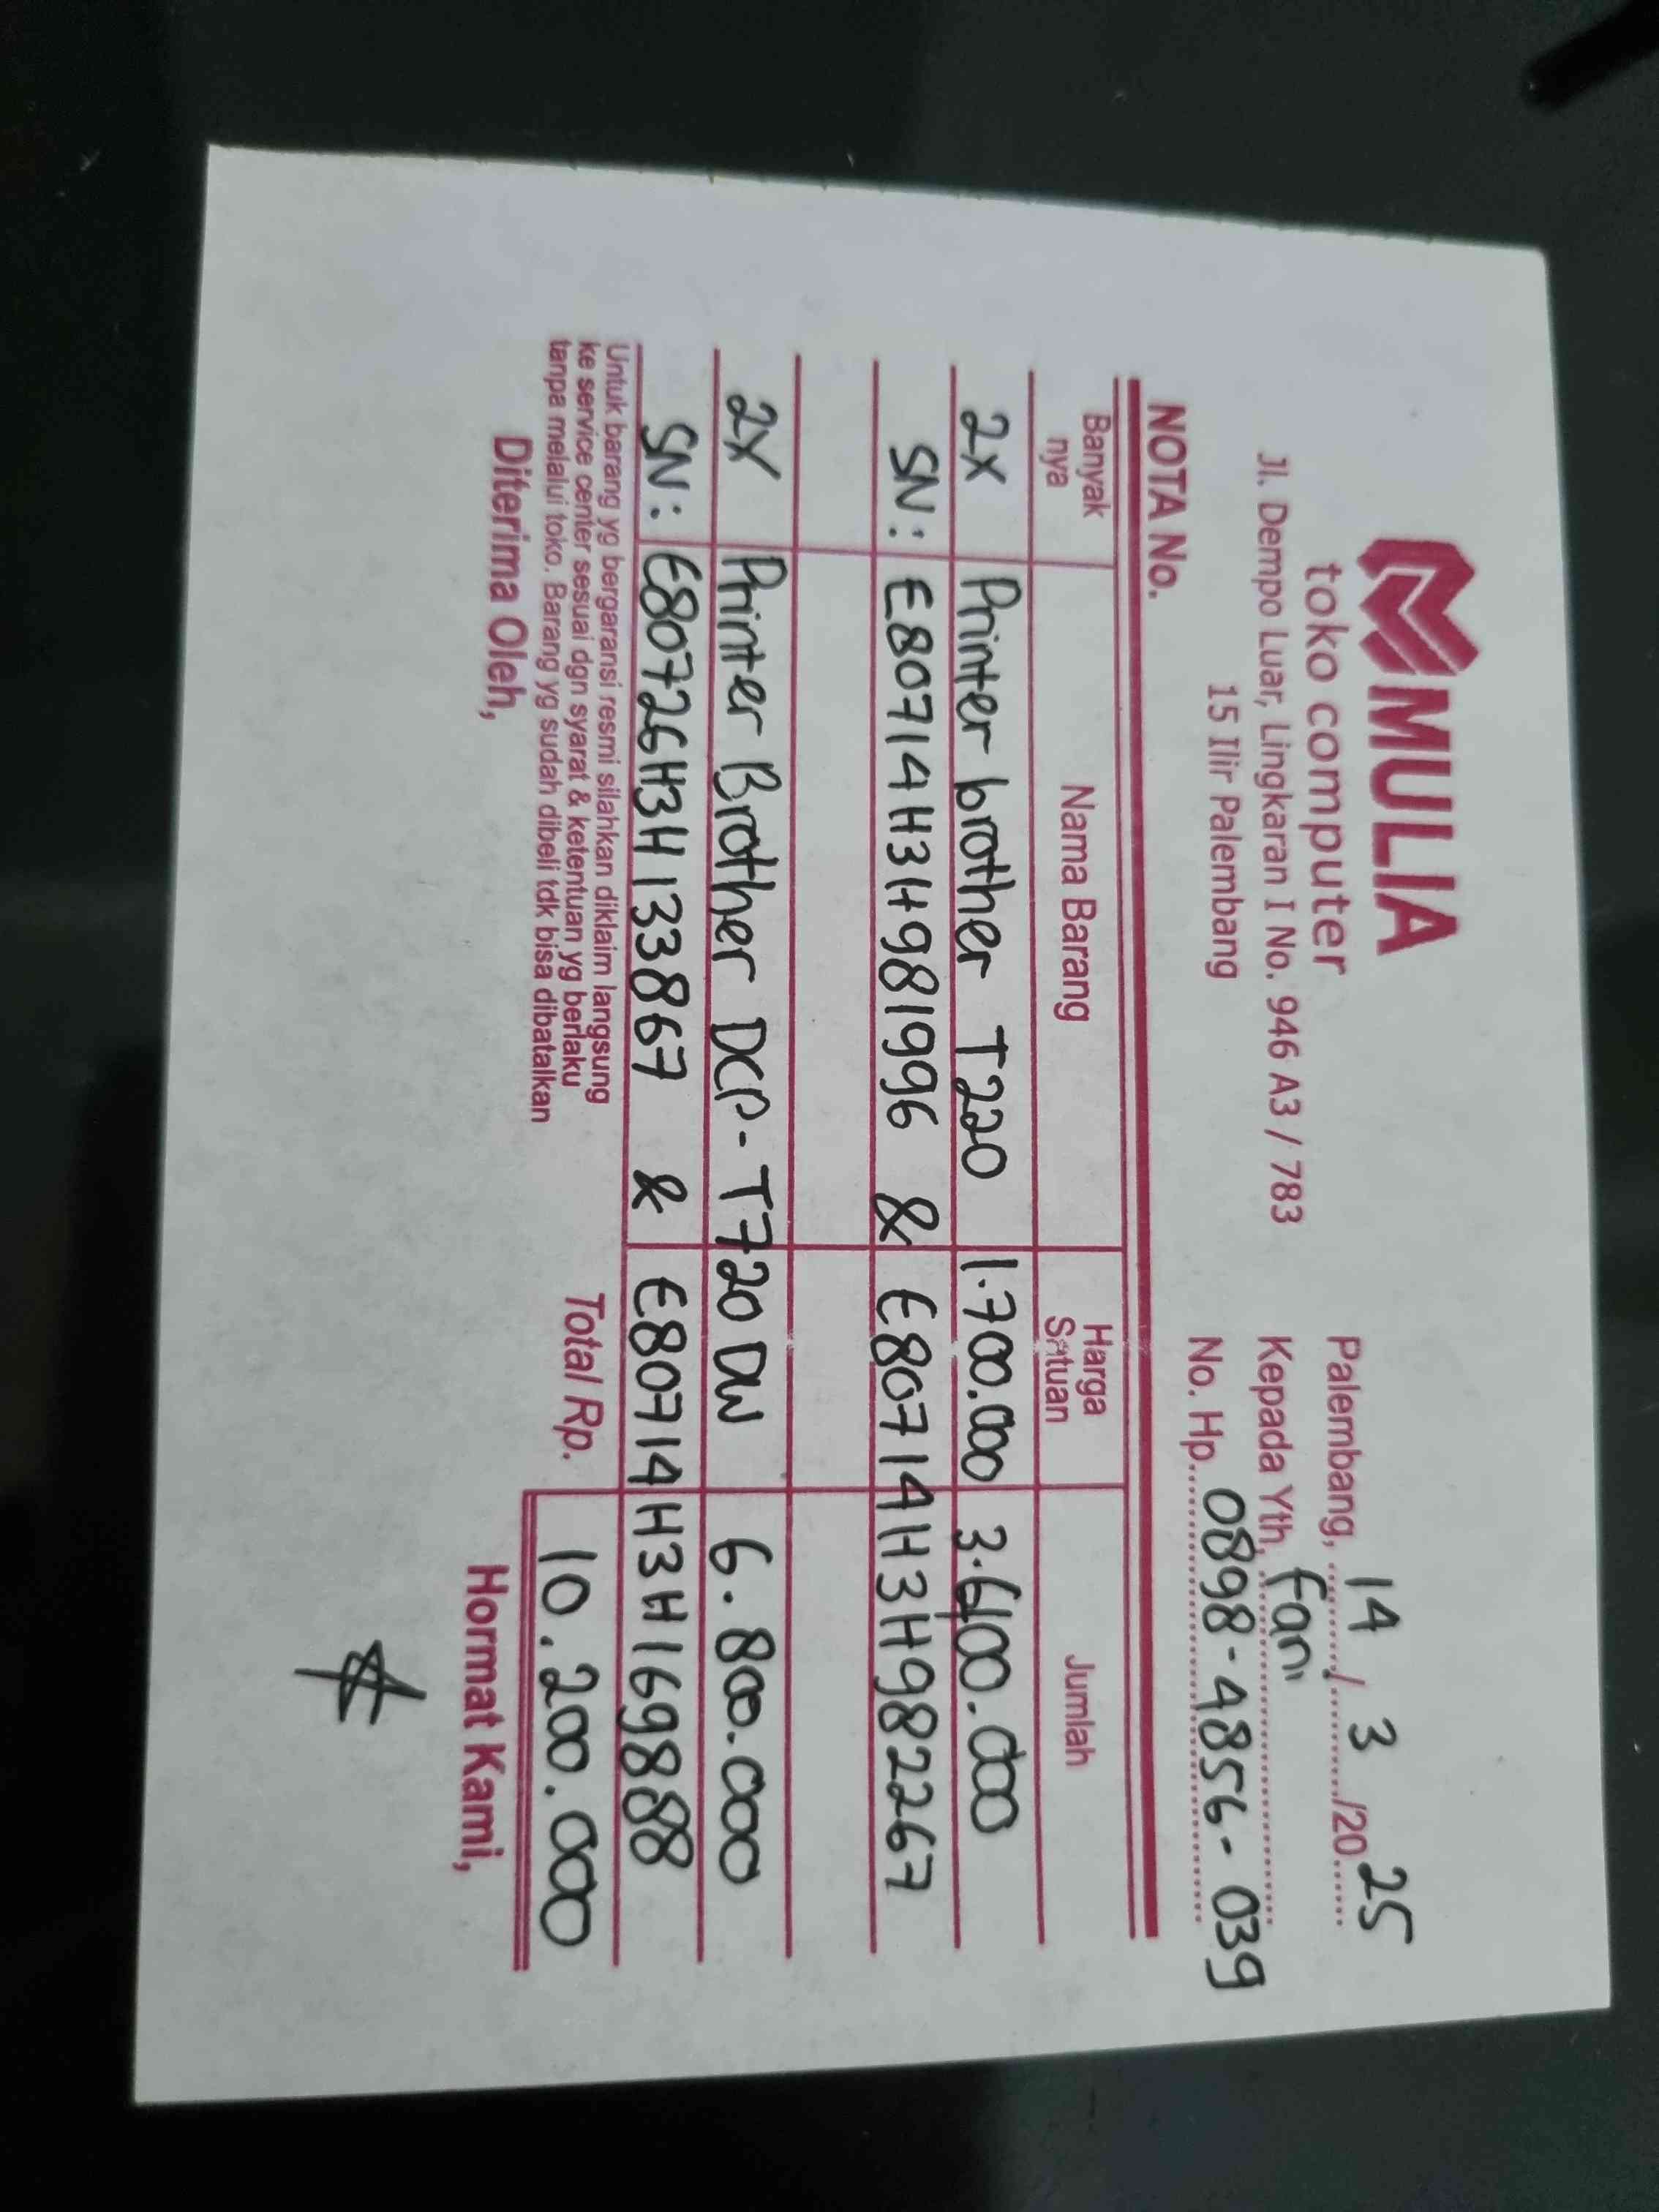 MULIA
toko computer
Jl. Dempo Luar, Lingkaran I No. 946 A3 / 783
15 Ilir Palembang
Palembang, 14 / 3 /20 25
Kepada Yth, Fani
No. Hp. 0898-4856-039
NOTA No.
Banyak nya Nama Barang Harga Satuan Jumlah
2x Printer brother T220 1.700.000 3.400.000
SN: E80714H3H981996 & E80714H3H982267
2x Printer Brother DCP-T720DW 6.800.000
SN: E80726H3H133867 & E80714H3H169888
Untuk barang yg bergaransi resmi silahkan diklaim langsung
ke service center sesuai dgn syarat & ketentuan yg berlaku
tanpa melalui toko. Barang yg sudah dibeli tdk bisa dibatalkan
Total Rp. 10.200.000
Diterima Oleh, Hormat Kami,